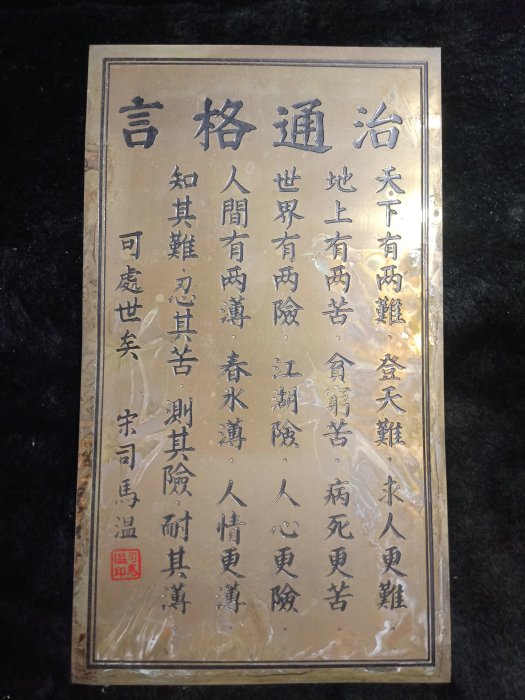 治通格言
天下有两難，登天難，求人更難，
地上有两苦，貧窮苦，病死更苦，
世界有两險，江湖險，人心更險，
人間有两薄，春氷薄，人情更薄，
知其難，忍其苦，測其險，耐其薄
可處世矣　宋司馬温
司馬温印